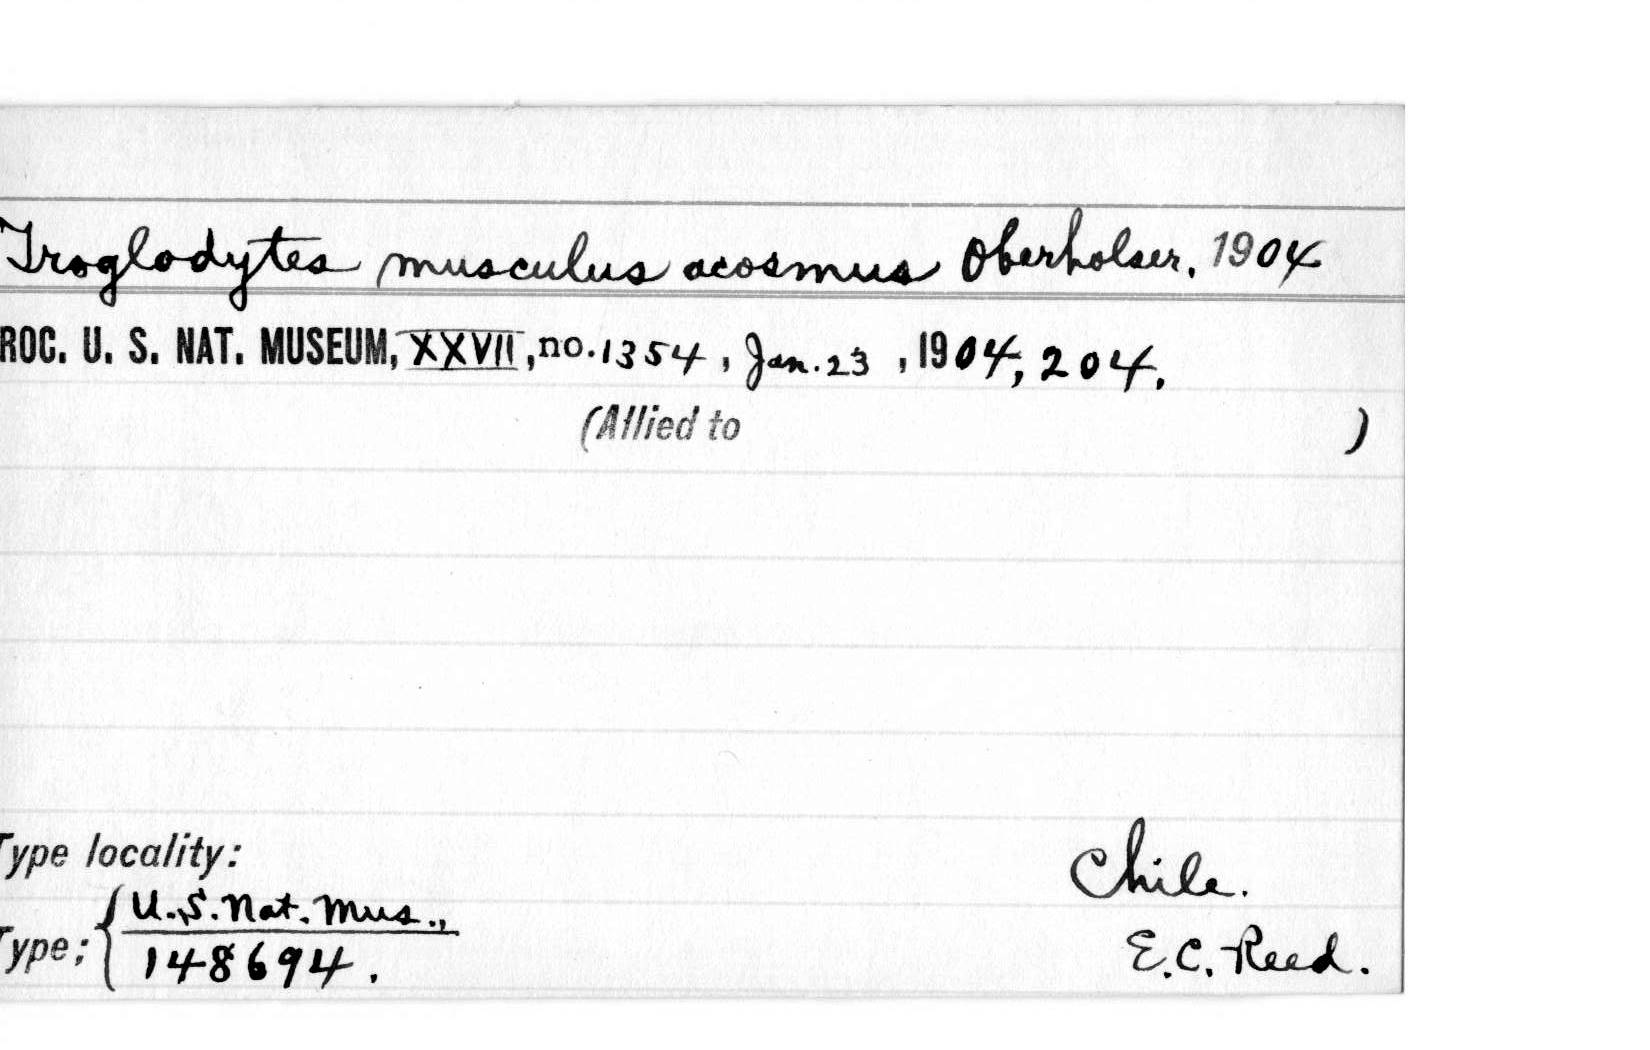 Troglodytes musculus acosmus Oberholser, 1904
ROC. U. S. NAT. MUSEUM, XXVII, no. 1354, Jan. 23, 1904, 204.
(Allied to )
Type locality: Chile.
Type: U.S. Nat. Mus., 148694. E.C. Reed.